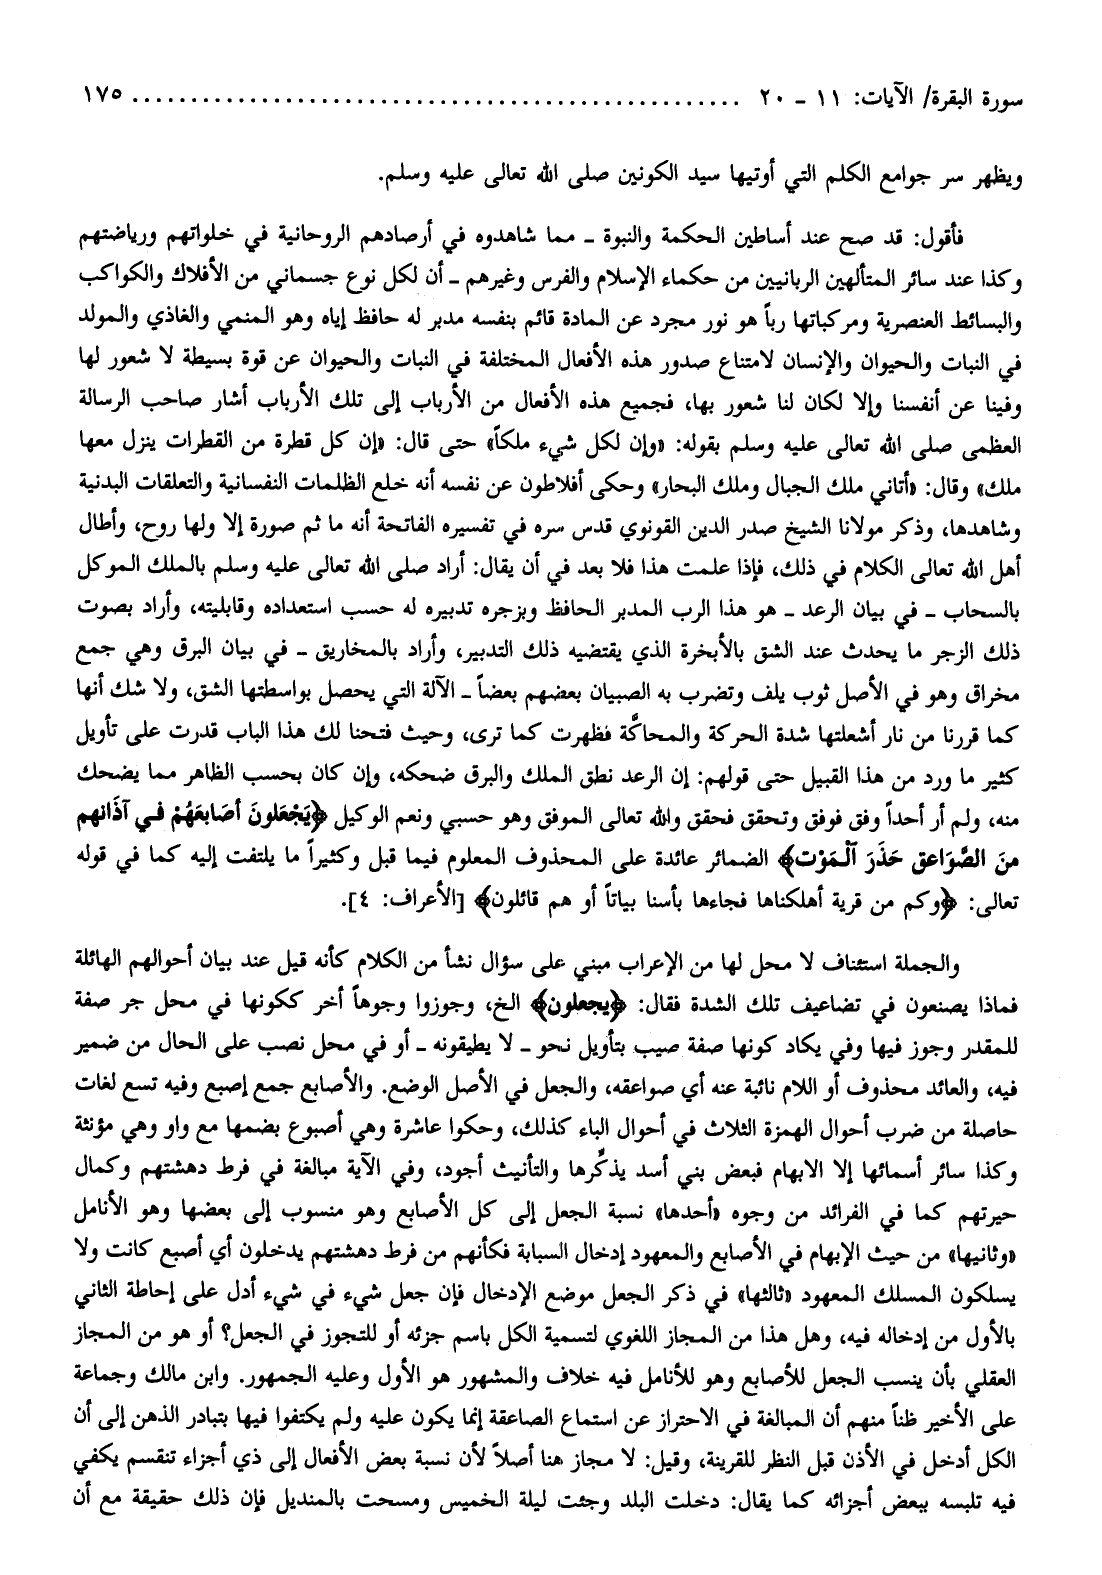 سورة البقرة/ الآيات: ١١ - ٢٠ ................................................ ١٧٥
ويظهر سر جوامع الكلم التي أوتيها سيد الكونين صلى الله تعالى عليه وسلم.
فأقول: قد صح عند أساطين الحكمة والنبوة ـ مما شاهدوه في أرصادهم الروحانية في خلواتهم ورياضتهم
وكذا عند سائر المتألهين الربانيين من حكماء الإسلام والفرس وغيرهم ـ أن لكل نوع جسماني من الأفلاك والكواكب
والبسائط العنصرية ومركباتها رباً هو نور مجرد عن المادة قائم بنفسه مدبر له حافظ إياه وهو المنمي والغاذي والمولد
في النبات والحيوان والإنسان لامتناع صدور هذه الأفعال المختلفة في النبات والحيوان عن قوة بسيطة لا شعور لها
وفينا عن أنفسنا وإلا لكان لنا شعور بها، فجميع هذه الأفعال من الأرباب إلى تلك الأرباب أشار صاحب الرسالة
العظمى صلى الله تعالى عليه وسلم بقوله: «وإن لكل شيء ملكاً» حتى قال: «إن كل قطرة من القطرات ينزل معها
ملك» وقال: «أتاني ملك الجبال وملك البحار» وحكى أفلاطون عن نفسه أنه خلع الظلمات النفسانية والتعلقات البدنية
وشاهدها، وذكر مولانا الشيخ صدر الدين القونوي قدس سره في تفسيره الفاتحة أنه ما ثم صورة إلا ولها روح، وأطال
أهل الله تعالى الكلام في ذلك، فإذا علمت هذا فلا بعد في أن يقال: أراد صلى الله تعالى عليه وسلم بالملك الموكل
بالسحاب ـ في بيان الرعد ـ هو هذا الرب المدبر الحافظ وبزجره تدبيره له حسب استعداده وقابليته، وأراد بصوت
ذلك الزجر ما يحدث عند الشق بالأبخرة الذي يقتضيه ذلك التدبير، وأراد بالمخاريق ـ في بيان البرق وهي جمع
مخراق وهو في الأصل ثوب يلف وتضرب به الصبيان بعضهم بعضاً ـ الآلة التي يحصل بواسطتها الشق، ولا شك أنها
كما قررنا من نار أشعلتها شدة الحركة والمحاكَّة فظهرت كما ترى، وحيث فتحنا لك هذا الباب قدرت على تأويل
كثير ما ورد من هذا القبيل حتى قولهم: إن الرعد نطق الملك والبرق ضحكه، وإن كان بحسب الظاهر مما يضحك
منه، ولم أر أحداً وفق فوفق وتحقق فحقق والله تعالى الموفق وهو حسبي ونعم الوكيل ﴿يَجْعَلونَ أصَابعَهُمْ فـي آذَانهم
منَ الصَّوَاعق حَذَرَ ٱلْمَوْت﴾ الضمائر عائدة على المحذوف المعلوم فيما قبل وكثيراً ما يلتفت إليه كما في قوله
تعالى: ﴿وكم من قرية أهلكناها فجاءها بأسنا بياتاً أو هم قائلون﴾ [الأعراف: ٤].
والجملة استئناف لا محل لها من الإعراب مبني على سؤال نشأ من الكلام كأنه قيل عند بيان أحوالهم الهائلة
فماذا يصنعون في تضاعيف تلك الشدة فقال: ﴿يجعلون﴾ الخ، وجوزوا وجوهاً أخر ككونها في محل جر صفة
للمقدر وجوز فيها وفي يكاد كونها صفة صيب بتأويل نحو ـ لا يطيقونه ـ أو في محل نصب على الحال من ضمير
فيه، والعائد محذوف أو اللام نائبة عنه أي صواعقه، والجعل في الأصل الوضع. والأصابع جمع إصبع وفيه تسع لغات
حاصلة من ضرب أحوال الهمزة الثلاث في أحوال الباء كذلك، وحكوا عاشرة وهي أصبوع بضمها مع واو وهي مؤنثة
وكذا سائر أسمائها إلا الابهام فبعض بني أسد يذكِّرها والتأنيث أجود، وفي الآية مبالغة في فرط دهشتهم وكمال
حيرتهم كما في الفرائد من وجوه «أحدها» نسبة الجعل إلى كل الأصابع وهو منسوب إلى بعضها وهو الأنامل
«وثانيها» من حيث الإبهام في الأصابع والمعهود إدخال السبابة فكأنهم من فرط دهشتهم يدخلون أي أصبع كانت ولا
يسلكون المسلك المعهود «ثالثها» في ذكر الجعل موضع الإدخال فإن جعل شيء في شيء أدل على إحاطة الثاني
بالأول من إدخاله فيه، وهل هذا من المجاز اللغوي لتسمية الكل باسم جزئه أو للتجوز في الجعل؟ أو هو من المجاز
العقلي بأن ينسب الجعل للأصابع وهو للأنامل فيه خلاف والمشهور هو الأول وعليه الجمهور. وابن مالك وجماعة
على الأخير ظناً منهم أن المبالغة في الاحتراز عن استماع الصاعقة إنما يكون عليه ولم يكتفوا فيها بتبادر الذهن إلى أن
الكل أدخل في الأذن قبل النظر للقرينة، وقيل: لا مجاز هنا أصلاً لأن نسبة بعض الأفعال إلى ذي أجزاء تنقسم يكفي
فيه تلبسه ببعض أجزائه كما يقال: دخلت البلد وجئت ليلة الخميس ومسحت بالمنديل فإن ذلك حقيقة مع أن